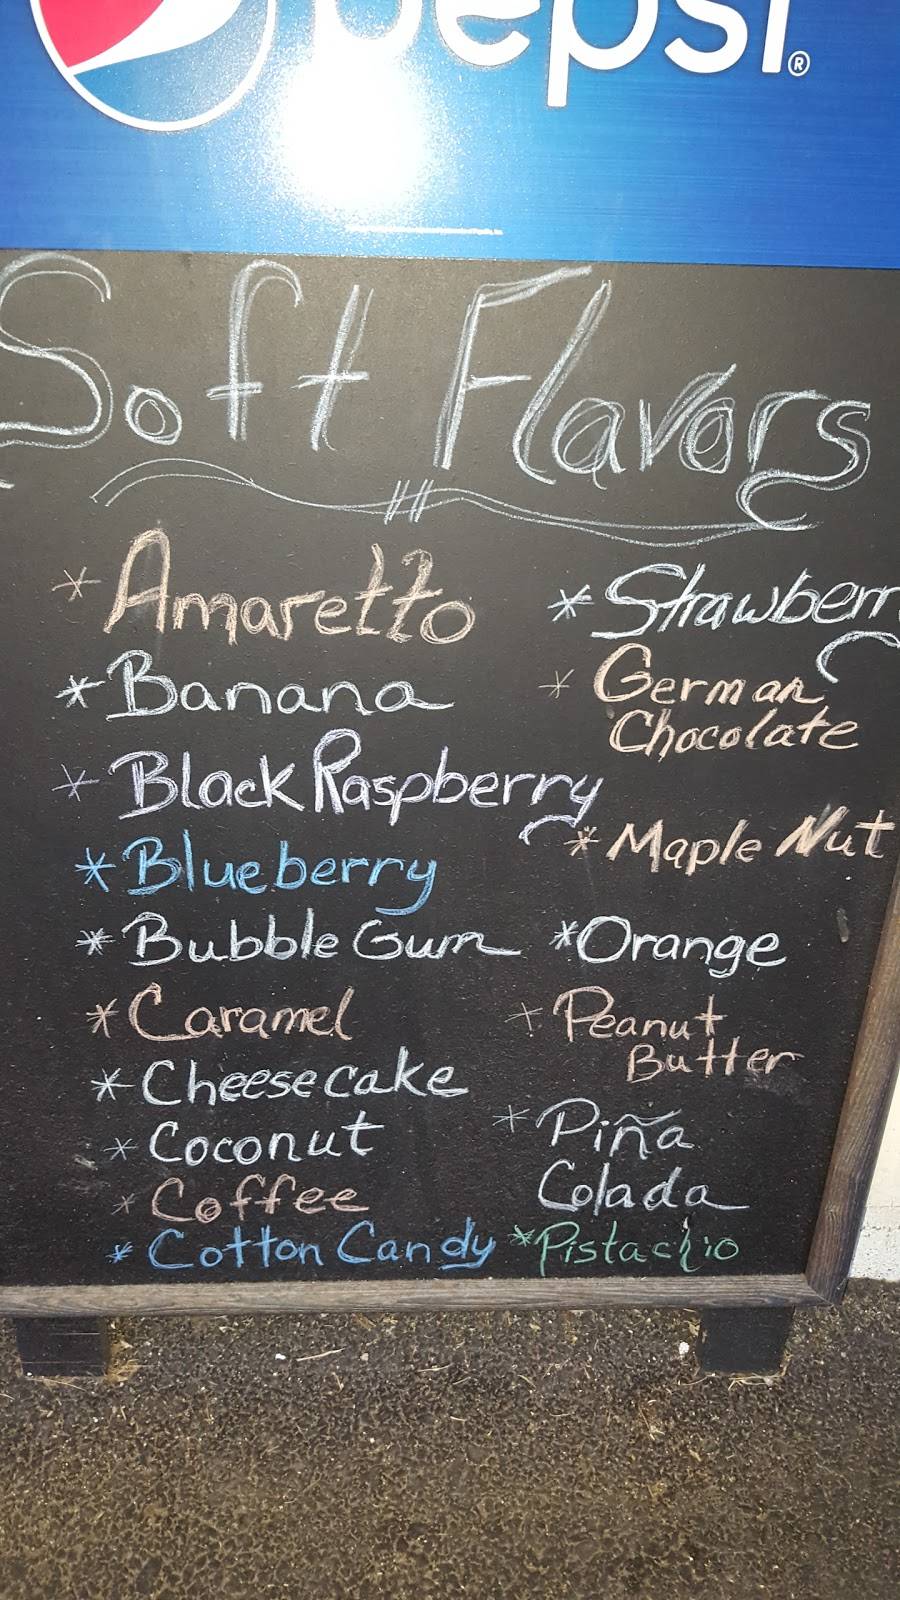 pepsi®
Soft Flavors
* Amaretto
* Banana
* Black Raspberry
* Blueberry
* Bubble Gum
* Caramel
* Cheesecake
* Coconut
* Coffee
* Cotton Candy
* Strawberry
* German
Chocolate
* Maple Nut
* Orange
* Peanut
Butter
* Piña
Colada
* Pistachio